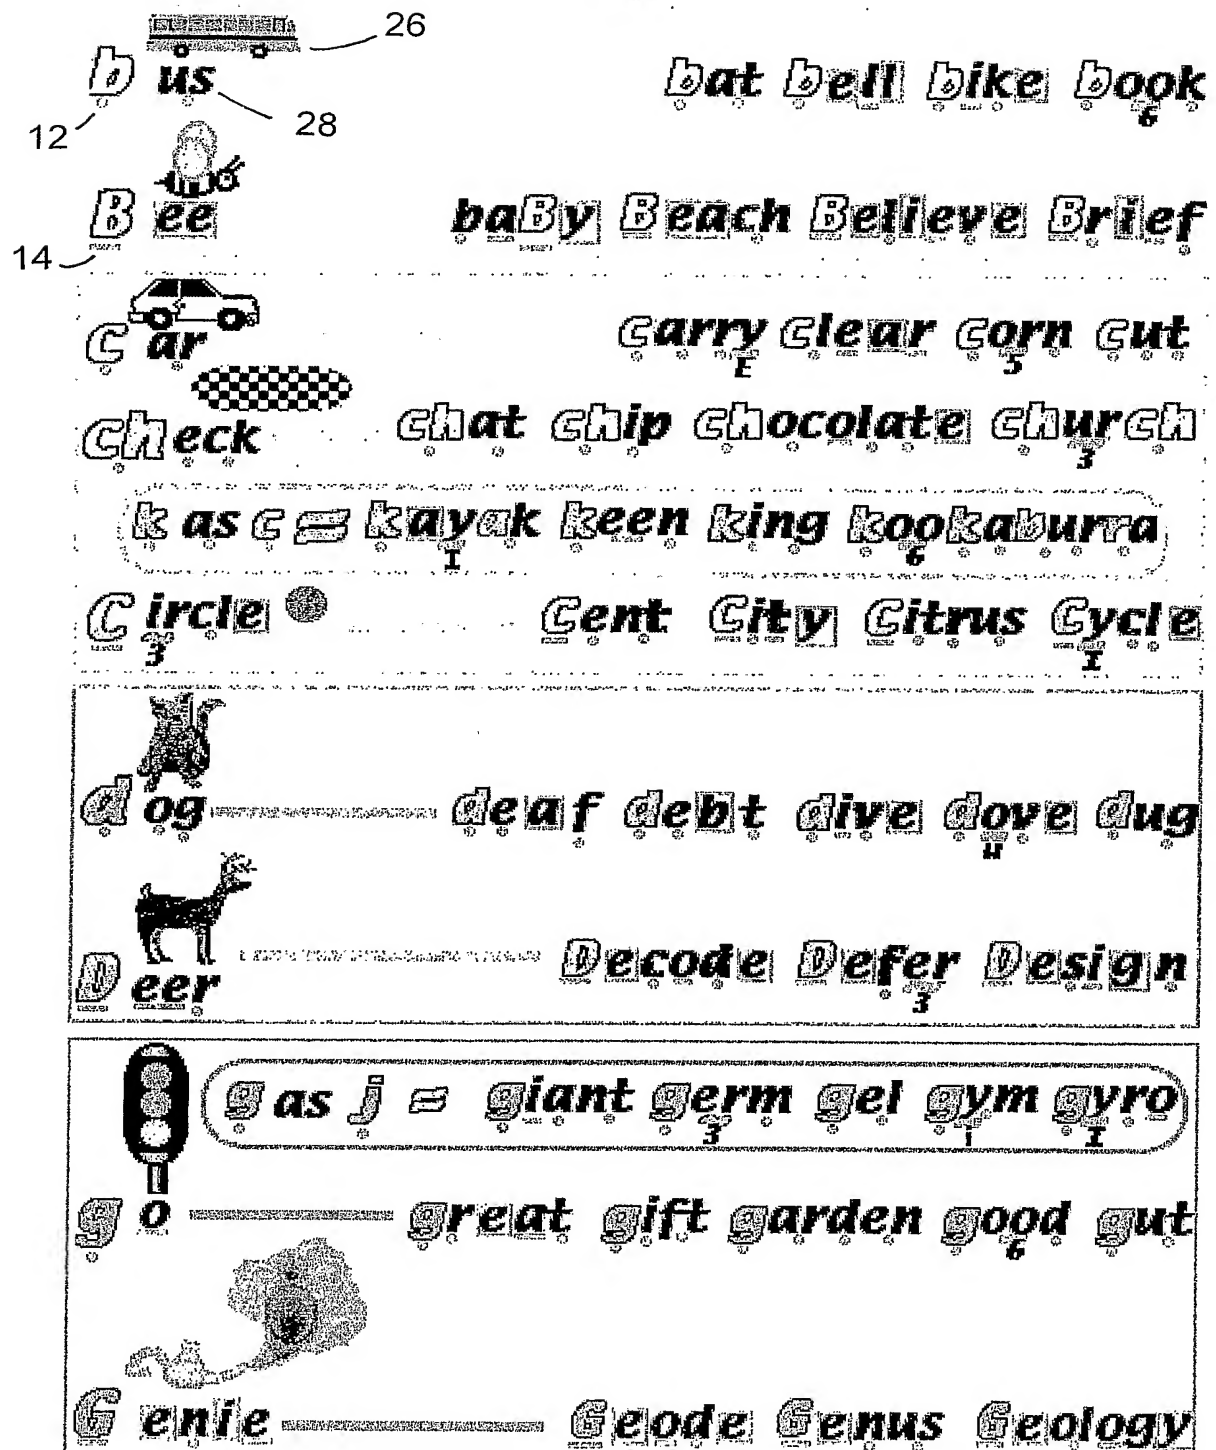 26
b us bat bell bike book
12 28 6
B ee baBy Beach Believe Brief
14
C ar Carry Clear Corn Cut
E 5
Check chat chip chocolate church
3
k as c = kayak keen king kookaburra
I 6
C ircle Cent City Citrus Cycle
3 I
d og deaf debt dive dove dug
u
D eer Decode Defer Design
3
g as j = giant germ gel gym gyro
3 i I
g o great gift garden good gut
6
G enie Geode Genus Geology